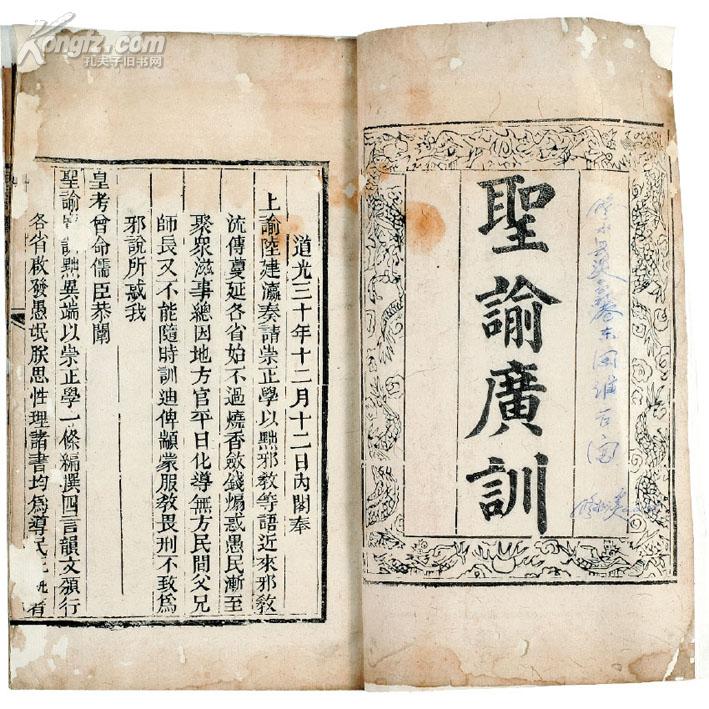 Kongfz.com
孔夫子旧书网
聖諭廣訓
道光三十年十二月十二日內閣奉
上諭陸建瀛奏請崇正學以黜邪教等語近來邪教
流傳蔓延各省始不過燒香斂錢煽惑愚民漸至
聚眾滋事總因地方官平日化導無方民間父兄
師長又不能隨時訓迪俾顓蒙服教畏刑不致為
邪說所惑我
皇考曾命儒臣恭闡
聖諭 黜異端以崇正學一條編撰四言韻文頒行
各省啟發愚氓朕思性理諸書均為導民